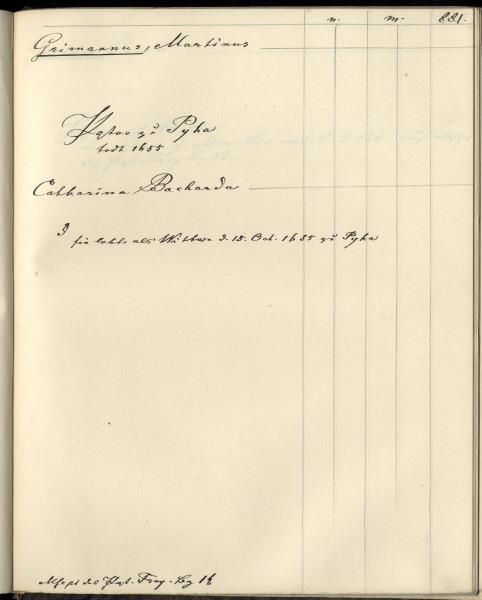 n. m. 881.
Grimannus, Martinus
Pastor zu Pyha
todt 1655
Catharina Bacharda
sie lebte als Wittwe d. 15. Oct. 1655 zu Pyha